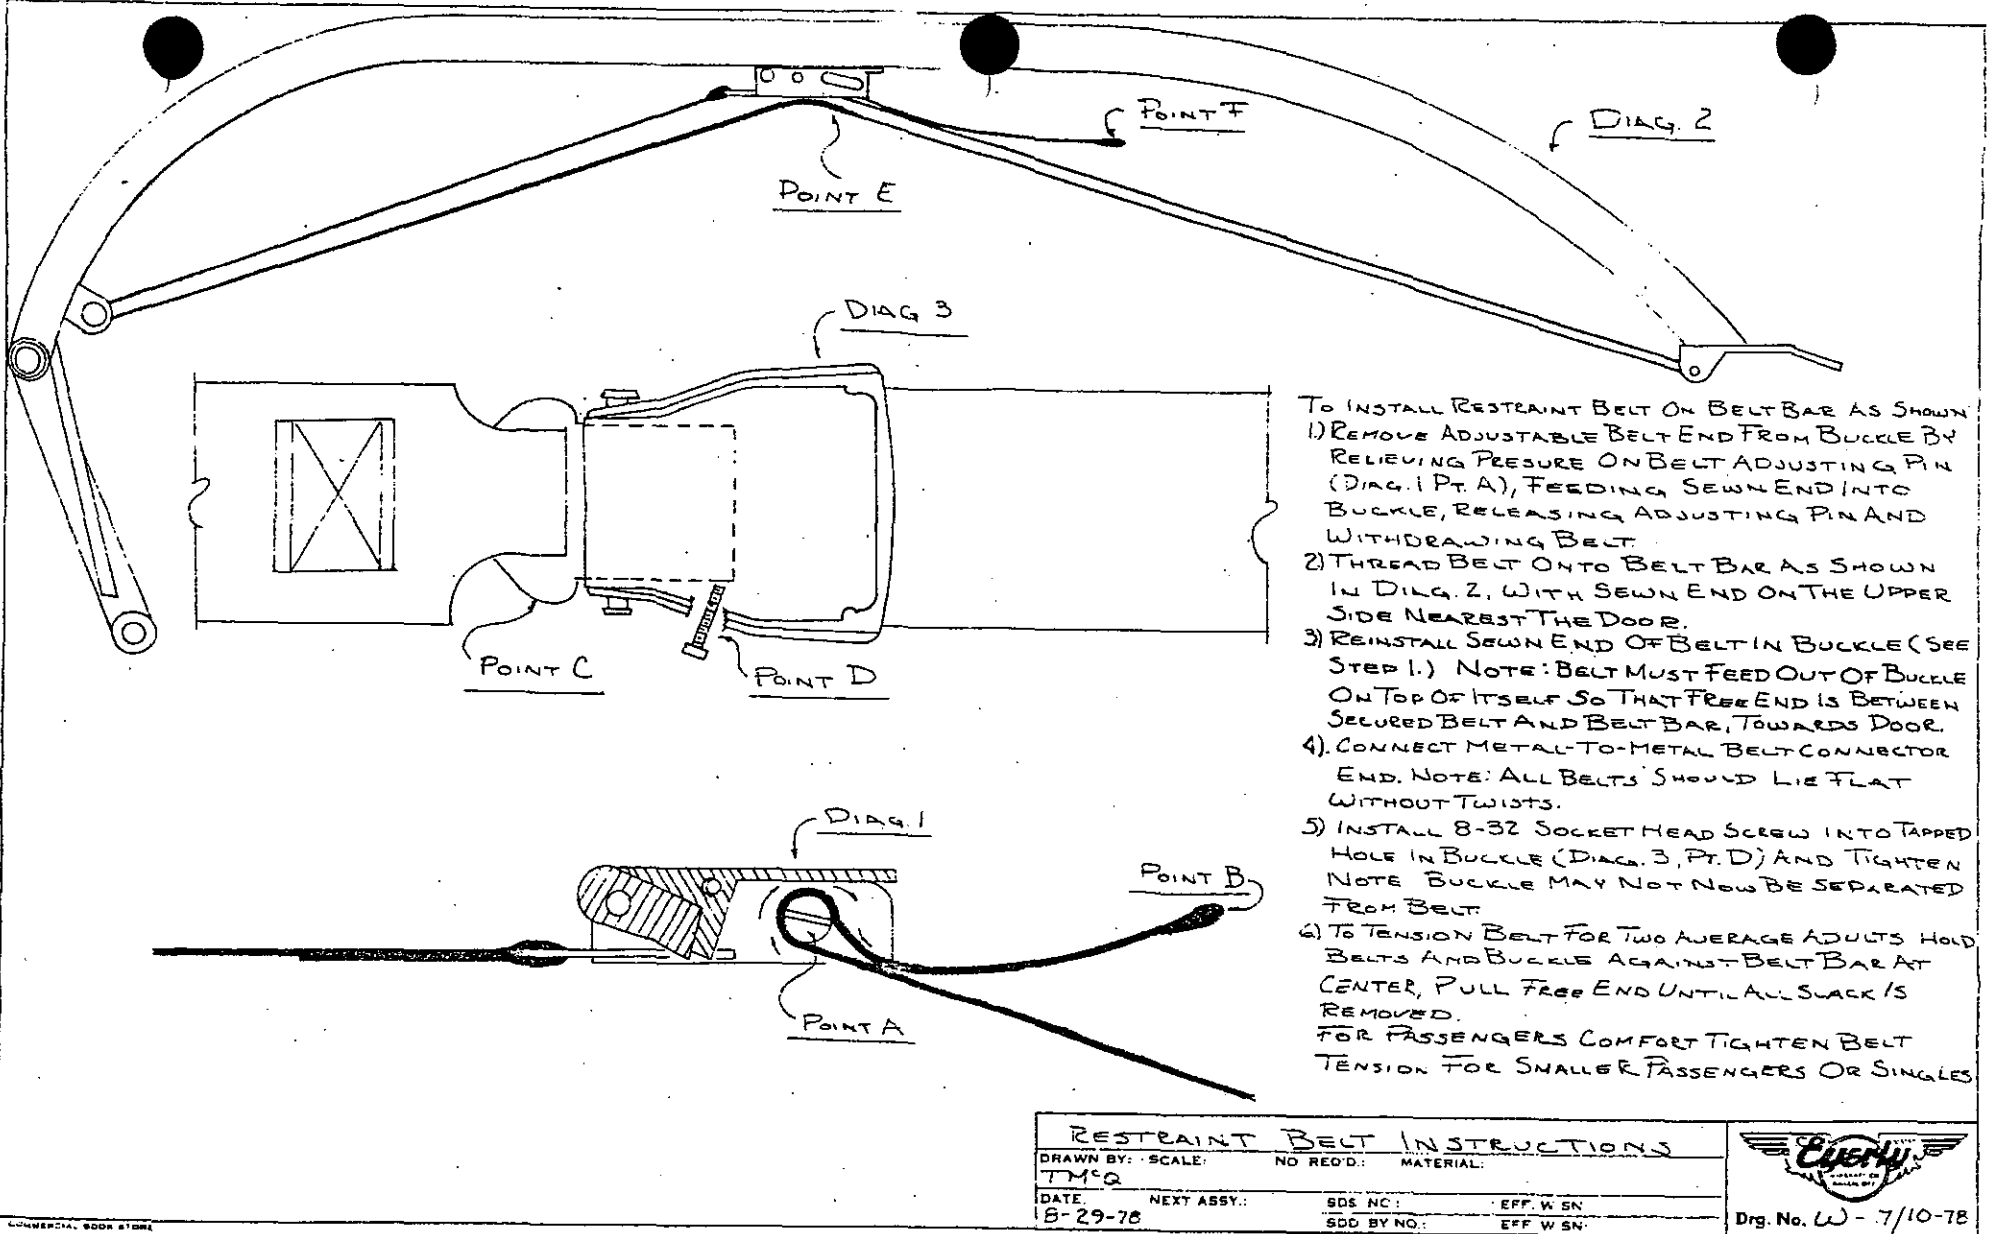 POINT F
DIAG. 2
POINT E
DIAG 3
TO INSTALL RESTRAINT BELT ON BELT BAR AS SHOWN
1.) REMOVE ADJUSTABLE BELT END FROM BUCKLE BY
RELIEVING PRESURE ON BELT ADJUSTING PIN
(DIAG. 1 PT. A), FEEDING SEWN END INTO
BUCKLE, RELEASING ADJUSTING PIN AND
WITHDRAWING BELT.
2) THREAD BELT ONTO BELT BAR AS SHOWN
IN DIAG. 2, WITH SEWN END ON THE UPPER
SIDE NEAREST THE DOOR.
3) REINSTALL SEWN END OF BELT IN BUCKLE (SEE
STEP 1.) NOTE: BELT MUST FEED OUT OF BUCKLE
ON TOP OF ITSELF SO THAT FREE END IS BETWEEN
SECURED BELT AND BELT BAR, TOWARDS DOOR.
4). CONNECT METAL-TO-METAL BELT CONNECTOR
END. NOTE: ALL BELTS SHOULD LIE FLAT
WITHOUT TWISTS.
5) INSTALL 8-32 SOCKET HEAD SCREW INTO TAPPED
HOLE IN BUCKLE (DIAG. 3, PT. D) AND TIGHTEN
NOTE BUCKLE MAY NOT NOW BE SEPARATED
FROM BELT.
6) TO TENSION BELT FOR TWO AVERAGE ADULTS HOLD
BELTS AND BUCKLE AGAINST BELT BAR AT
CENTER, PULL FREE END UNTIL ALL SLACK IS
REMOVED.
FOR PASSENGERS COMFORT TIGHTEN BELT
TENSION FOR SMALLER PASSENGERS OR SINGLES
POINT C
POINT D
DIAG. 1
POINT B
POINT A
RESTRAINT BELT INSTRUCTIONS
DRAWN BY: SCALE: NO REQ'D.: MATERIAL:
TMcQ
DATE. NEXT ASSY.: SDS NO: EFF. W SN
8-29-78
SDD BY NO.: EFF W SN
Eyerly
Drg. No. W - 7/10-78
COMMERCIAL BOOK STORE